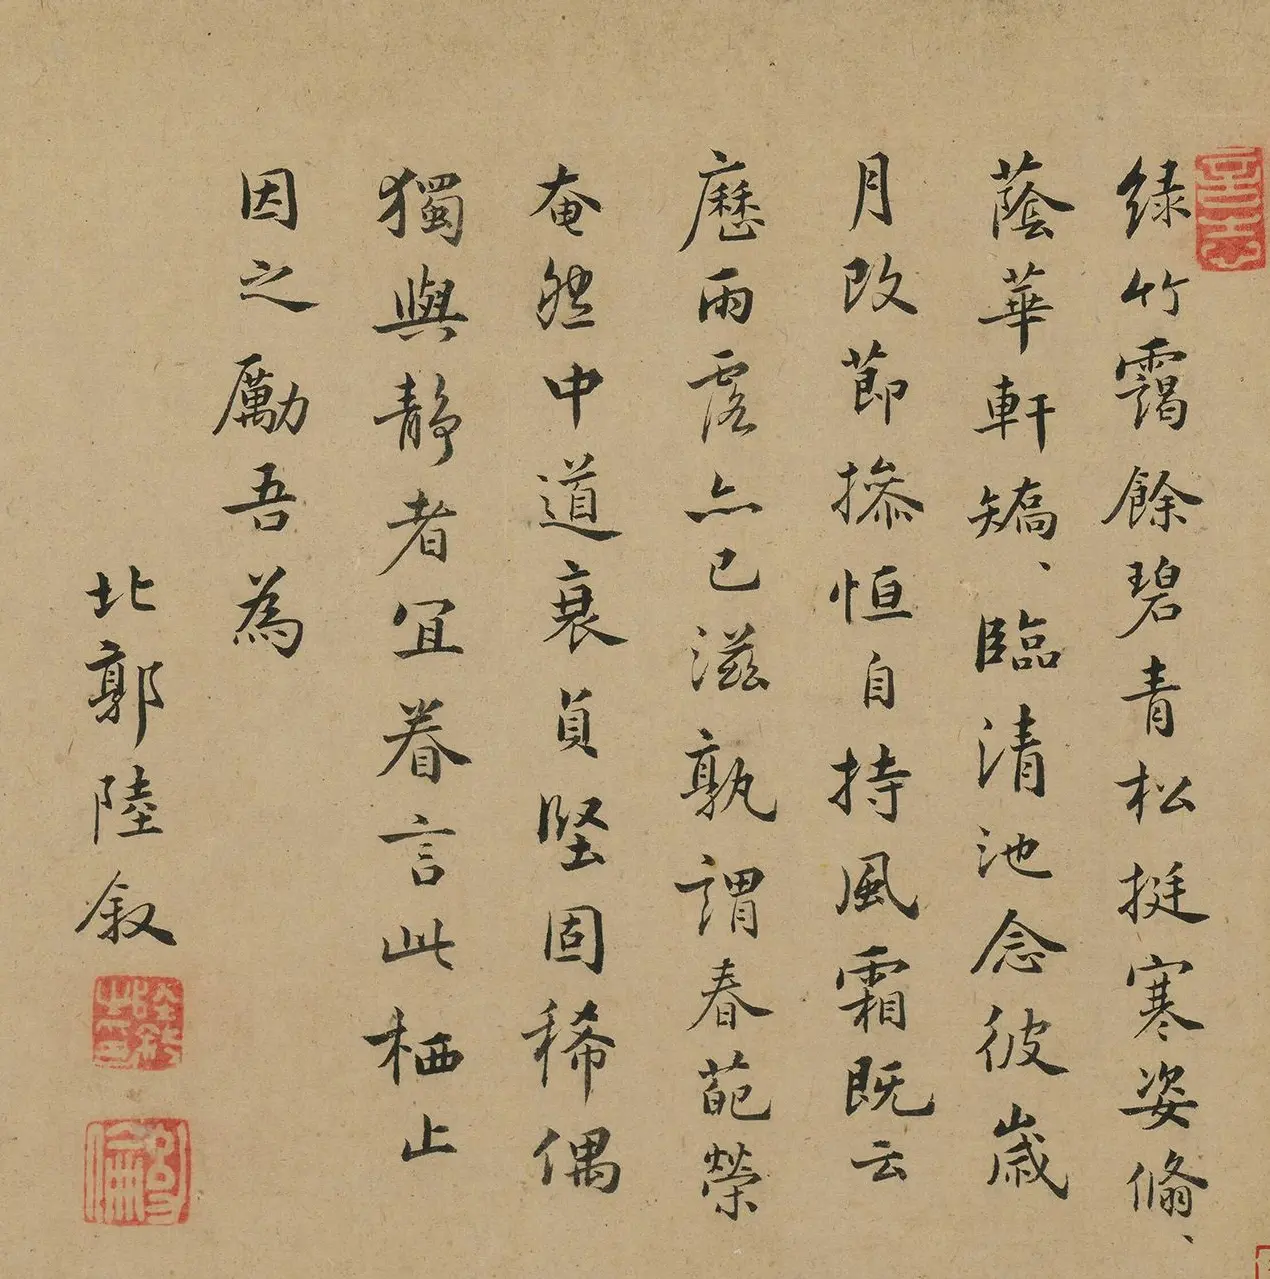 緑竹靄餘碧青松挺寒姿翛、
蔭華軒矯、臨清池念彼歲
月改莭摻恒自持風霜既云
歷雨露亦已滋孰謂春葩榮
奄然中道衰貞堅固稀偶
獨與静者宜眷言此栖止
因之勵吾為
北郭陸叙